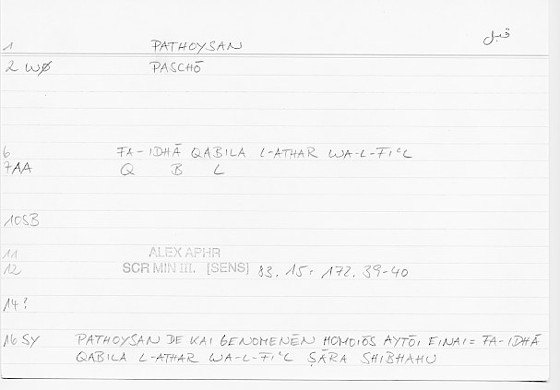 قبل
1 PATHOYSAN
2 WØ PASCHŌ
6 FA-IDHĀ QABILA L-ATHAR WA-L-FIʿL
7AA Q B L
10SB
11 ALEX APHR
12 SCR MIN III. [SENS] 83.15 = 172.39-40
14?
16 SY PATHOYSAN DE KAI GENOMENĒN HOMOIŌS AYTŌI EINAI = FA-IDHĀ
QABILA L-ATHAR WA-L-FIʿL ṢĀRA SHIBHAHU